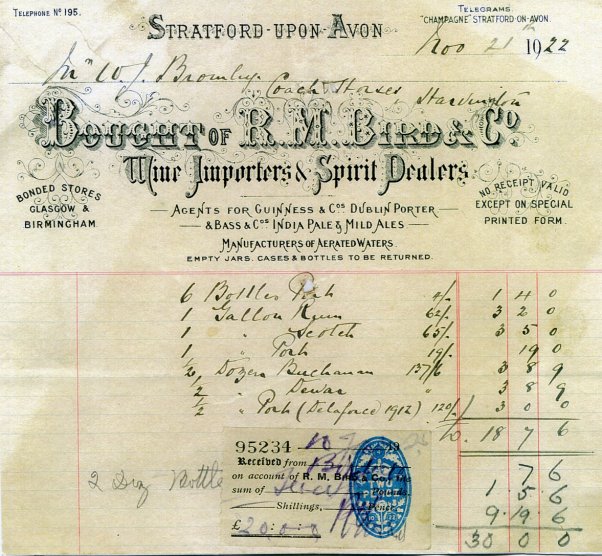 TELEPHONE No 195.
TELEGRAMS.
"CHAMPAGNE" STRATFORD-ON-AVON.
STRATFORD-UPON-AVON
Nov 21st 1922
Mr W. J. Bromley
Coach & Horses Harvington
BOUGHT OF R. M. BIRD & Co.
Wine Importers & Spirit Dealers.
BONDED STORES
GLASGOW &
BIRMINGHAM
NO RECEIPT VALID
EXCEPT ON SPECIAL
PRINTED FORM.
AGENTS FOR GUINNESS & Cos DUBLIN PORTER
& BASS & Cos INDIA PALE & MILD ALES
MANUFACTURERS OF AERATED WATERS.
EMPTY JARS, CASES & BOTTLES TO BE RETURNED.
6 Bottles Port 4/- 1 4 0
1 Gallon Rum 62/- 3 2 0
1 " Scotch 65/- 3 5 0
1 " Port 19/- 19 0
1/2 Dozen Buchanan 137/6 3 8 9
1/2 " Dewar " 3 8 9
1/2 " Port (Delaforce 1912) 120/- 3 0 0
18 7 6
95234
Received from
on account of R. M. BIRD & Co
sum of Pounds
Shillings, Pence
£ 20 . 0 . 0
TWO PENCE
2 Bottle
7 6
1 5 6
9 19 6
30 0 0